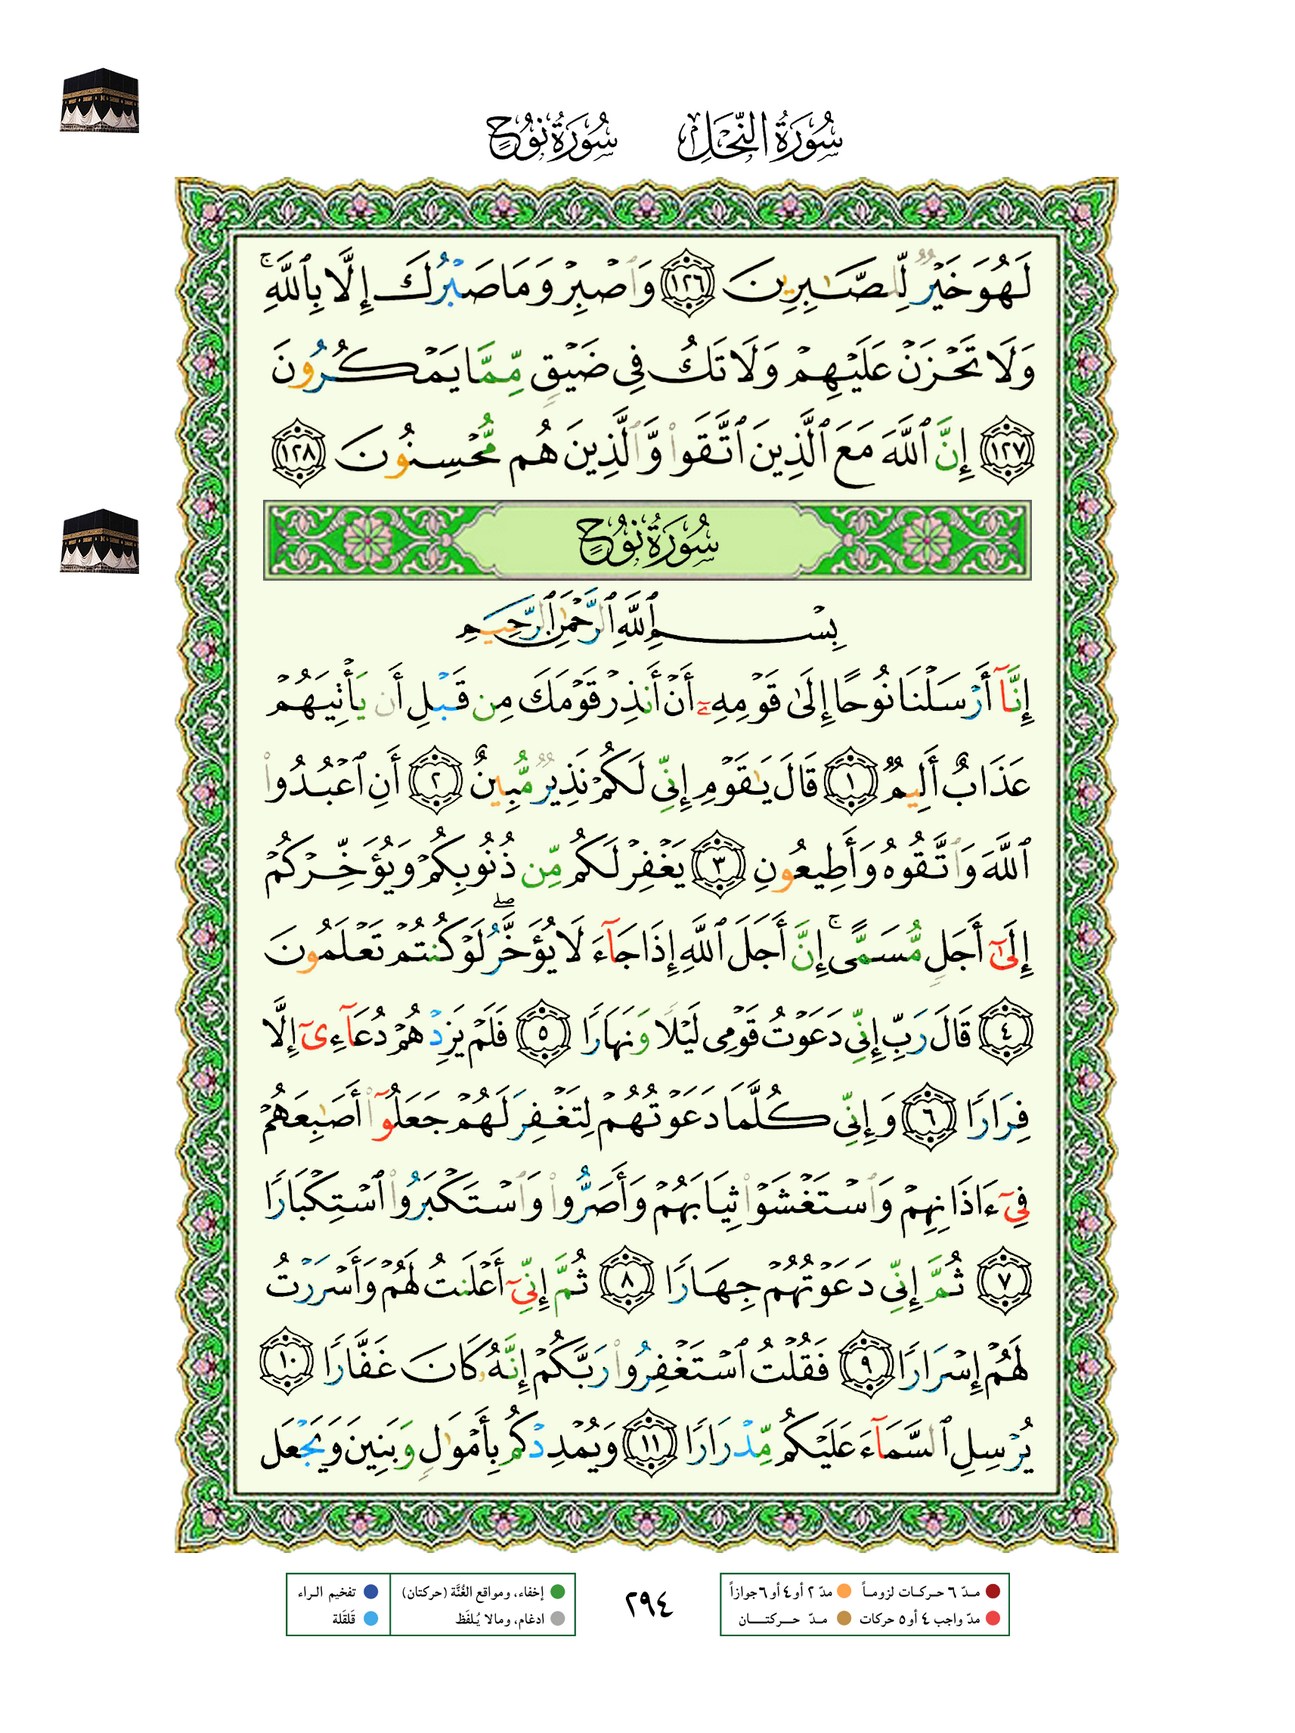 سُورَةُ النَّحْلِ سُورَةُ نُوحٍ
لَهُوَ خَيْرٌ لِّلصَّـٰبِرِينَ ١٢٦ وَٱصْبِرْ وَمَا صَبْرُكَ إِلَّا بِٱللَّهِۚ
وَلَا تَحْزَنْ عَلَيْهِمْ وَلَا تَكُ فِى ضَيْقٍ مِّمَّا يَمْكُرُونَ
١٢٧ إِنَّ ٱللَّهَ مَعَ ٱلَّذِينَ ٱتَّقَوا۟ وَّٱلَّذِينَ هُم مُّحْسِنُونَ ١٢٨
سُورَةُ نُوحٍ
بِسْمِ ٱللَّهِ ٱلرَّحْمَـٰنِ ٱلرَّحِيمِ
إِنَّآ أَرْسَلْنَا نُوحًا إِلَىٰ قَوْمِهِۦٓ أَنْ أَنذِرْ قَوْمَكَ مِن قَبْلِ أَن يَأْتِيَهُمْ
عَذَابٌ أَلِيمٌ ١ قَالَ يَـٰقَوْمِ إِنِّى لَكُمْ نَذِيرٌ مُّبِينٌ ٢ أَنِ ٱعْبُدُوا۟
ٱللَّهَ وَٱتَّقُوهُ وَأَطِيعُونِ ٣ يَغْفِرْ لَكُم مِّن ذُنُوبِكُمْ وَيُؤَخِّرْكُمْ
إِلَىٰٓ أَجَلٍ مُّسَمًّىۚ إِنَّ أَجَلَ ٱللَّهِ إِذَا جَآءَ لَا يُؤَخَّرُۖ لَوْ كُنتُمْ تَعْلَمُونَ
٤ قَالَ رَبِّ إِنِّى دَعَوْتُ قَوْمِى لَيْلًا وَنَهَارًا ٥ فَلَمْ يَزِدْهُمْ دُعَآءِىٓ إِلَّا
فِرَارًا ٦ وَإِنِّى كُلَّمَا دَعَوْتُهُمْ لِتَغْفِرَ لَهُمْ جَعَلُوٓا۟ أَصَـٰبِعَهُمْ
فِىٓ ءَاذَانِهِمْ وَٱسْتَغْشَوْا۟ ثِيَابَهُمْ وَأَصَرُّوا۟ وَٱسْتَكْبَرُوا۟ ٱسْتِكْبَارًا
٧ ثُمَّ إِنِّى دَعَوْتُهُمْ جِهَارًا ٨ ثُمَّ إِنِّىٓ أَعْلَنتُ لَهُمْ وَأَسْرَرْتُ
لَهُمْ إِسْرَارًا ٩ فَقُلْتُ ٱسْتَغْفِرُوا۟ رَبَّكُمْ إِنَّهُۥ كَانَ غَفَّارًا ١٠
يُرْسِلِ ٱلسَّمَآءَ عَلَيْكُم مِّدْرَارًا ١١ وَيُمْدِدْكُم بِأَمْوَٰلٍ وَبَنِينَ وَيَجْعَل
مدّ ٦ حركات لزوماً مدّ ٢ أو ٤ أو ٦ جوازاً
مدّ واجب ٤ أو ٥ حركات مدّ حركتان
٢٩٤
إخفاء، ومواقع الغُنَّة (حركتان) تفخيم الراء
ادغام، ومالا يُلفَظ قَلقَلة